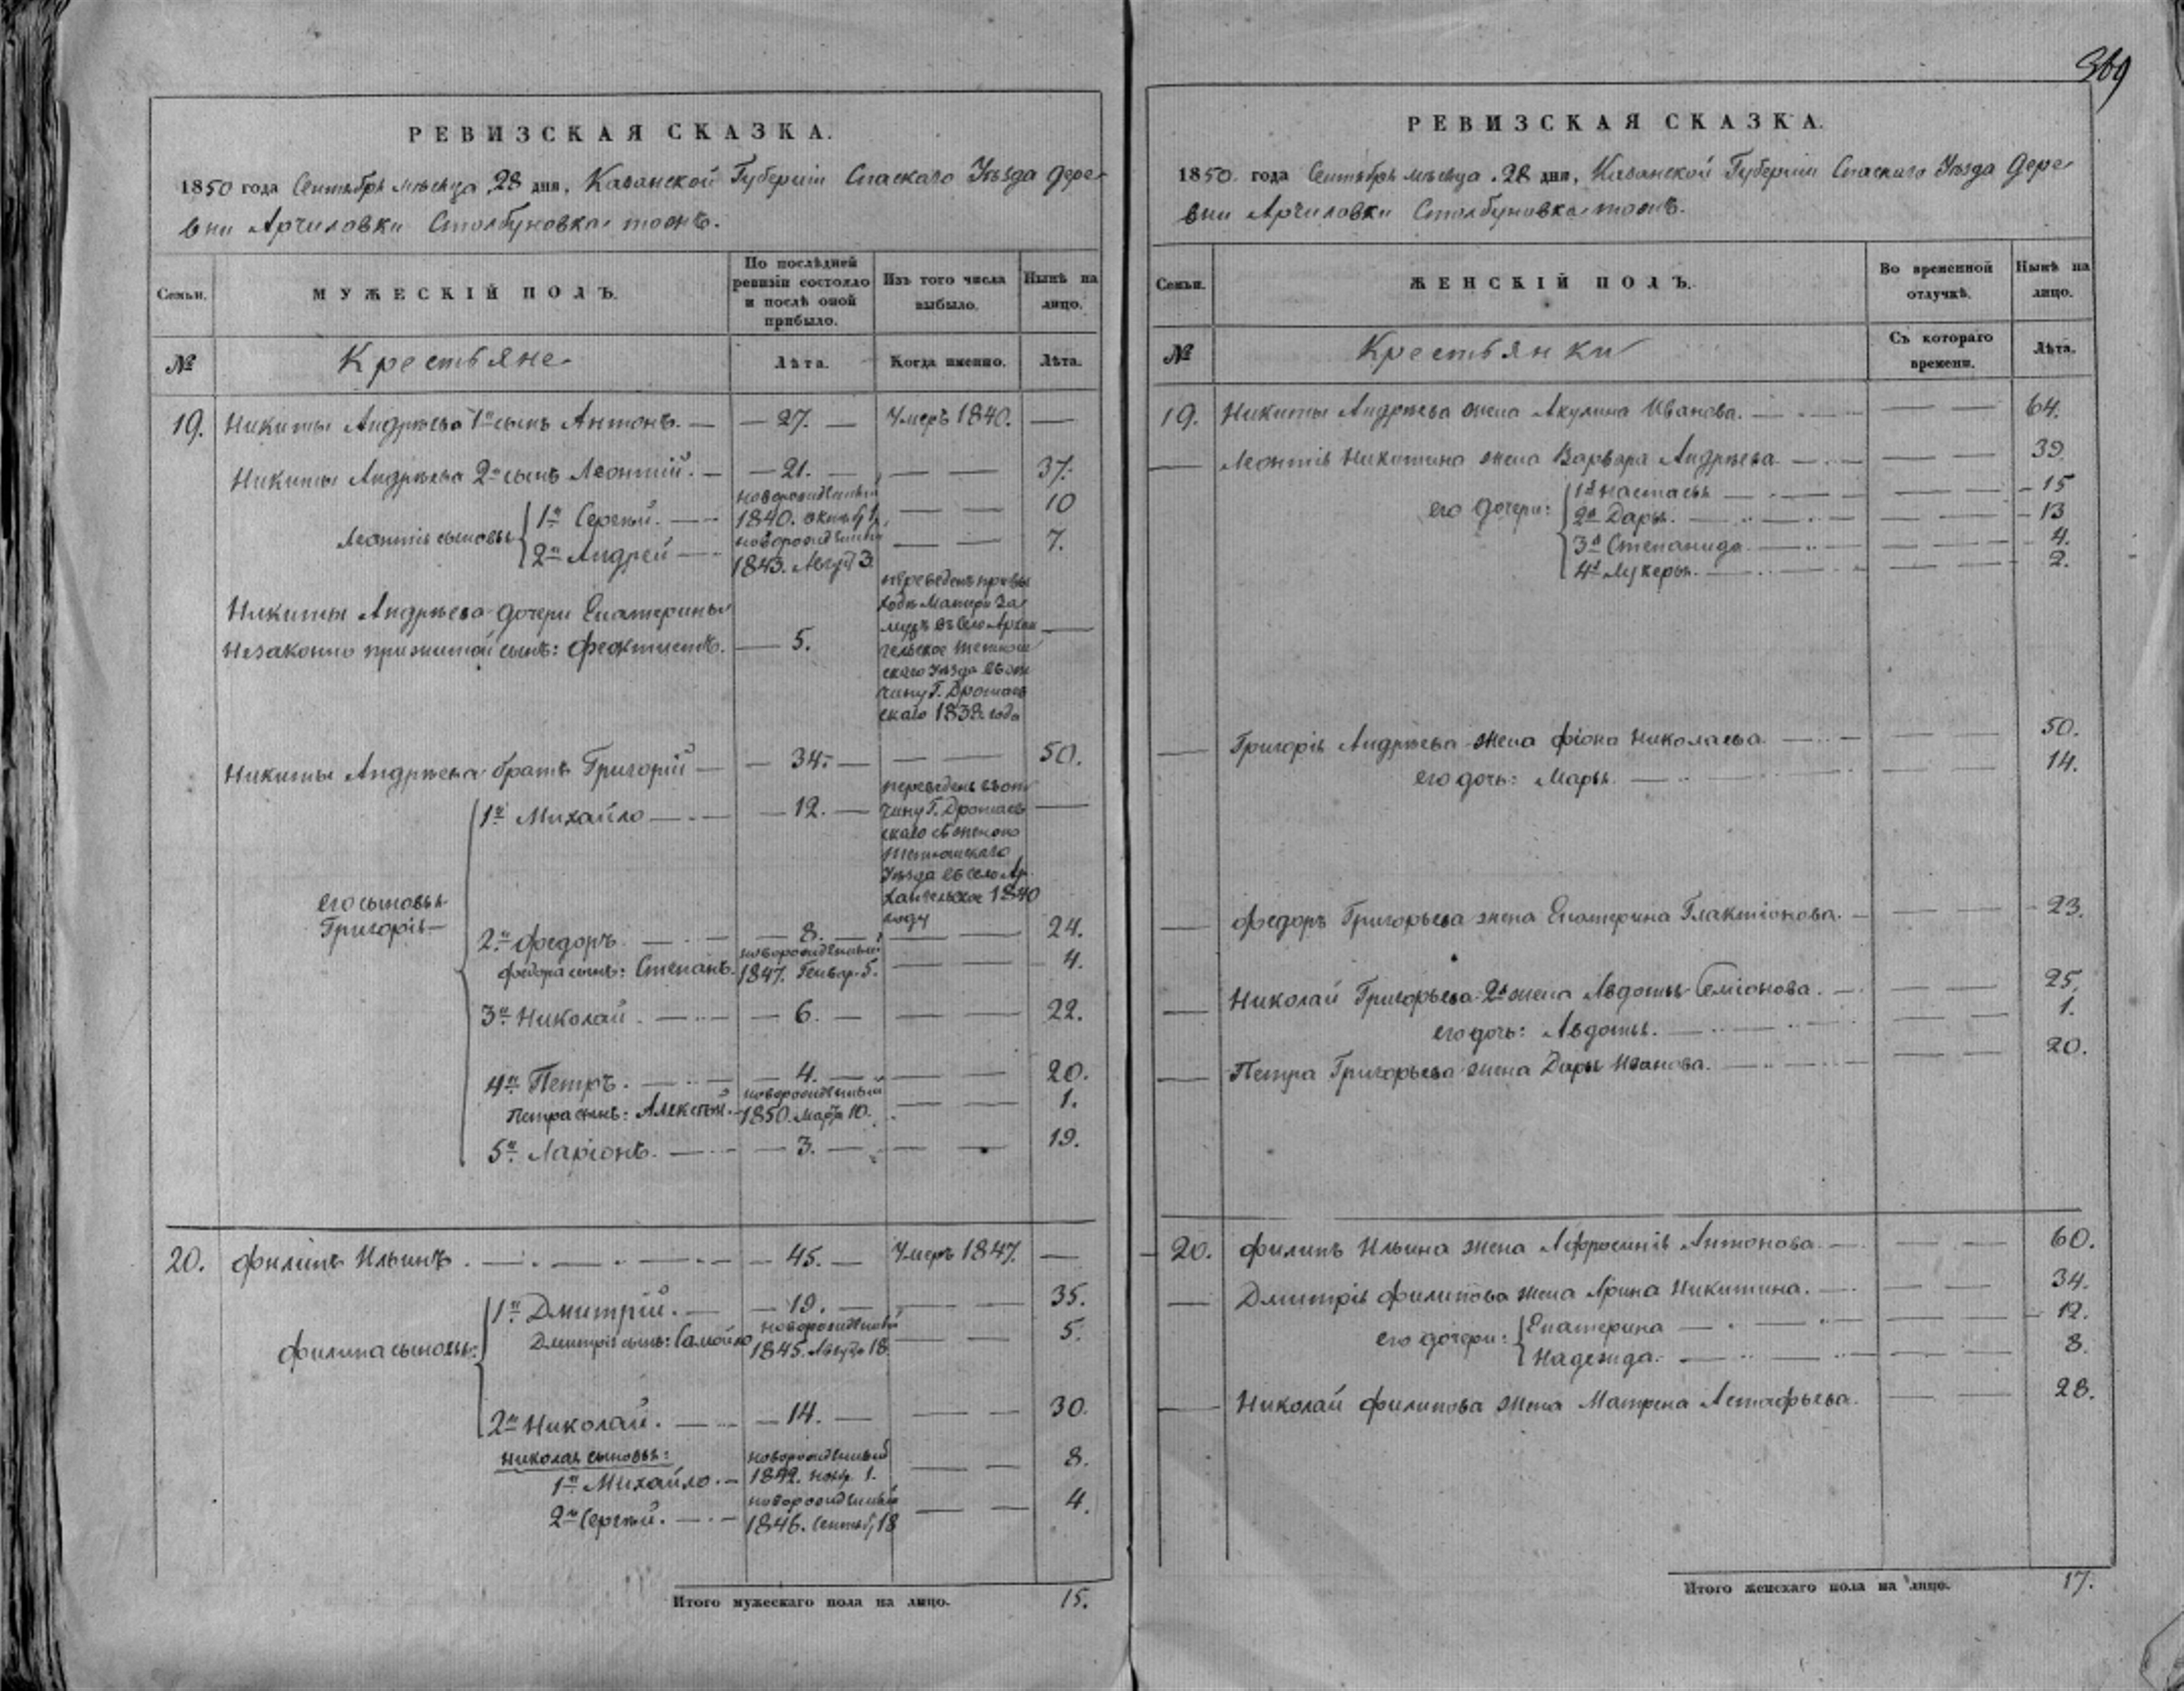 369
РЕВИЗСКАЯ СКАЗКА.
1850 года Сентября месяца 28 дня, Казанской Губерніи Спаскаго Уѣзда дере
вни Арчиловки Столбуновка тожъ.
Семьи.
МУЖЕСКІЙ ПОЛЪ.
По послѣдней ревизіи состояло и послѣ оной прибыло.
Изъ того числа выбыло.
Нынѣ на лицо.
№
Крестьяне
Лѣта.
Когда именно.
Лѣта.
19. Никиты Андрѣева 1й сынъ Антонъ. — 27. — Умеръ 1840. —
Никиты Андрѣева 2й сынъ Леонтій. — 21. — — — 37.
Леонтія сыновья
1й Сергѣй. — новорожденный 1840. октяб 1, — — 10
2й Андрей — новорожденный 1843. Август 3. — — 7.
Никиты Андрѣева дочери Екатерины
Незаконно прижитой сынъ: Феоктистъ. — 5.
переведенъ при вы
ходѣ Матери За
мужъ въ Село Архан
гельское Тетюш
скаго Уѣзда въ от
чину Г. Дромаев
скаго 1838 года
Никиты Андрѣева братъ Григорій — 34. — — — 50.
его сыновья Григорія
1й Михайло — 12. —
переведенъ въ от
чину Г. Дромаев
скаго съ женою
Тетюшскаго
Уѣзда въ Село Ар
хангельское 1840
году
2й Федоръ. — 8. — — — 24.
Федора сынъ: Степанъ. новорожденный 1847. Генвар. 5. — — 4.
3й Николай. — 6. — — — 22.
4й Петръ. — 4. — — — 20.
Петра сынъ: Алексѣй. новорожденный 1850. Марта 10. — — 1.
5й Ларіонъ. — 3. — — — 19.
20. Филипъ Ильинъ. — 45. — Умеръ 1847. —
Филипа сыновья:
1й Дмитрій. — 19. — — — 35.
Дмитрія сынъ: Самойло новорожденный 1845. Августа 18. — — 5.
2й Николай. — 14. — — — 30.
Николая сыновья:
1й Михайло. — новорожденный 1842. нояб. 1. — — 8.
2й Сергѣй. — новорожденный 1846. Сентяб, 18 — — 4.
Итого мужескаго пола на лицо. 15.
РЕВИЗСКАЯ СКАЗКА.
1850. года Сентября месяца 28 дня, Казанской Губерніи Спаскаго Уѣзда дере
вни Арчиловки Столбуновка тожъ.
Семьи.
ЖЕНСКІЙ ПОЛЪ.
Во временной отлучкѣ.
Нынѣ на лицо.
№
Крестьянки
Съ котораго времени.
Лѣта.
19. Никиты Андрѣева жена Акулина Иванова. — — 64.
— Леонтія Никитина жена Варвара Андрѣева — — 39.
его дочери:
1я Настасья — — 15
2я Дарья. — — 13
3я Степанида. — — 4.
4я Лукерья. — — 2.
— Григорія Андрѣева жена Фіона Николаева — — 50.
его дочь: Марья. — — 14.
— Федоръ Григорьева жена Екатерина Галактіонова. — — 23.
— Николай Григорьева 2я жена Авдотья Семіонова. — — 25.
его дочь: Авдотья. — — 1.
— Петра Григорьева жена Дарья Иванова. — — 20.
20. Филипъ Ильина жена Афросинія Антонова. — — 60.
— Дмитрія Филипова жена Арина Никитина. — — 34.
его дочери:
Екатерина — — 12.
Надежда. — — 8.
— Николай Филипова жена Матрена Астафьева. — — 28.
Итого женскаго пола на лицо. 17.